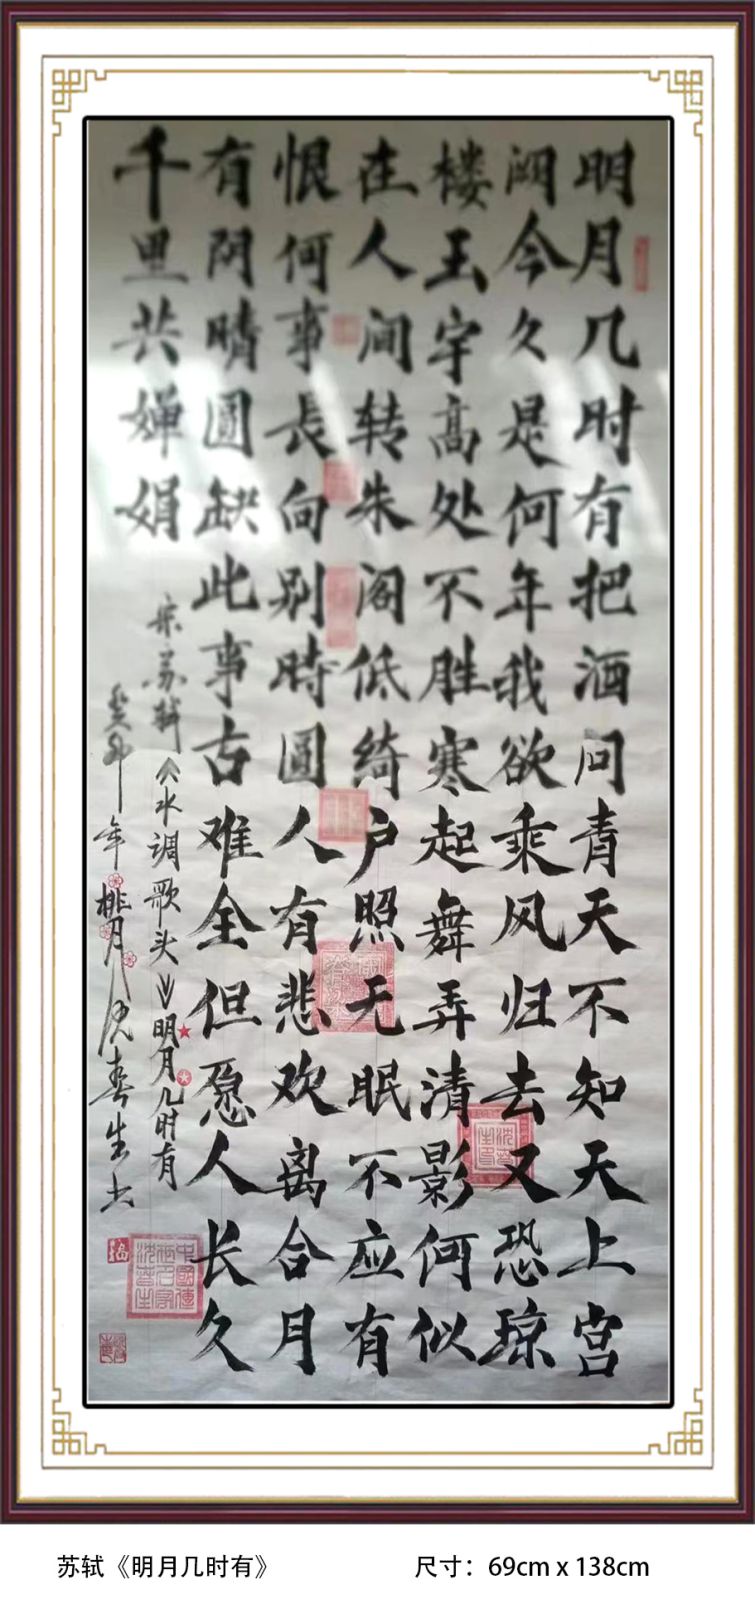 明月几时有把酒问青天不知天上宫
阙今久是何年我欲乘风归去又恐琼
楼玉宇高处不胜寒起舞弄清影何似
在人间转朱阁低绮户照无眠不应有
恨何事长向别時圆人有悲欢离合月
有阴晴圆缺此事古难全但愿人长久
千里共婵娟
宋苏轼《水调歌头》明月几时有
癸卯年桃月沈春生书
沈春生印
苏轼《明月几时有》
尺寸：69cm x 138cm